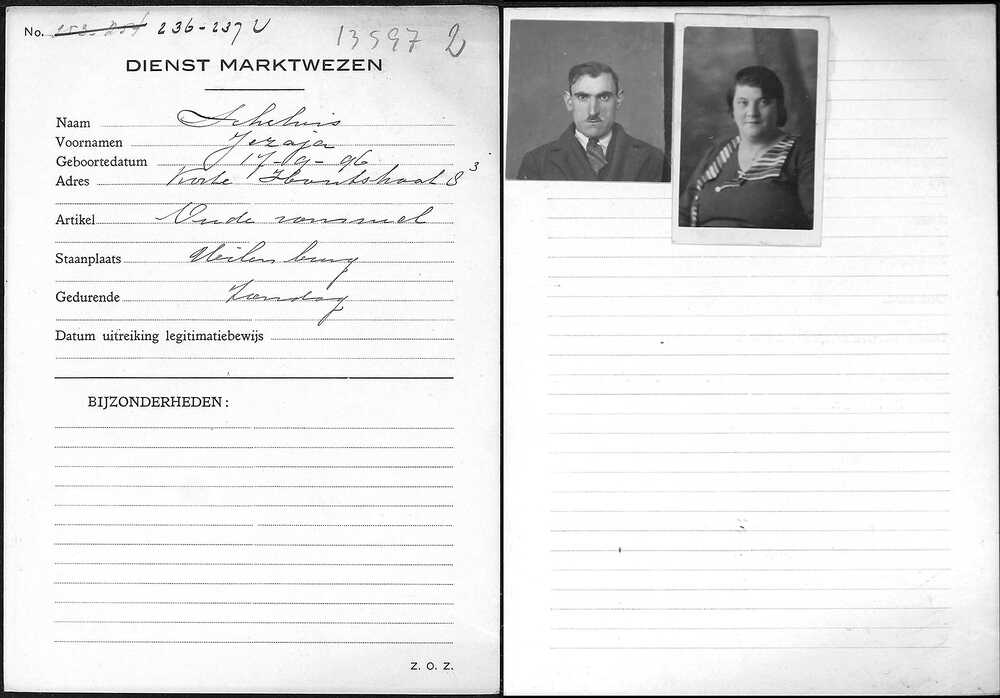 No. 236-237 U 13597 2
DIENST MARKTWEZEN
Naam Schelvis
Voornamen Jezaja
Geboortedatum 17-9-96
Adres Korte Houtstraat 8³
Artikel Oude rommel
Staanplaats Uilenburg
Gedurende Zondag
Datum uitreiking legitimatiebewijs
BIJZONDERHEDEN:
Z. O. Z.